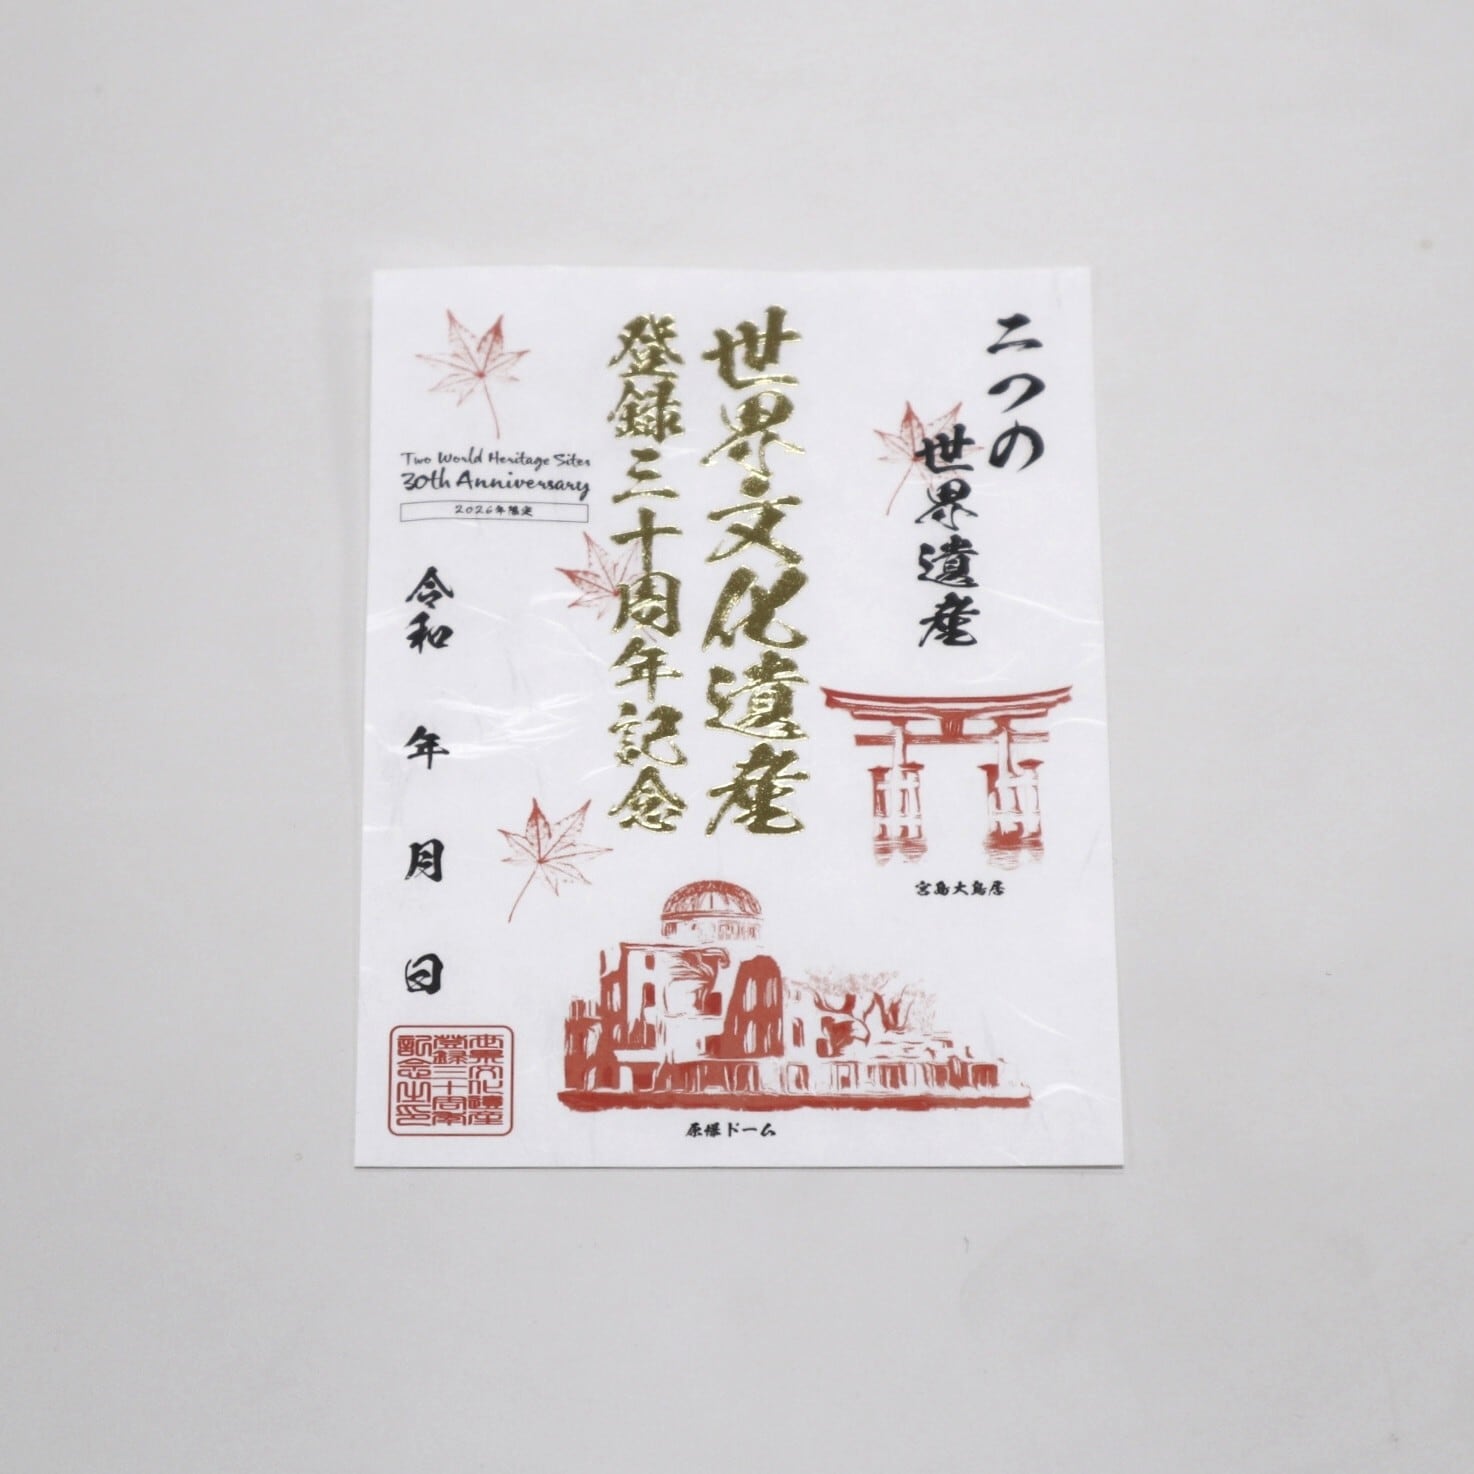 二つの
世界遺産
世界文化遺産
登録三十周年記念
Two World Heritage Sites
30th Anniversary
2026年限定
令和
年
月
日
宮島大鳥居
原爆ドーム
世界文化遺産
登録三十周年
記念之印